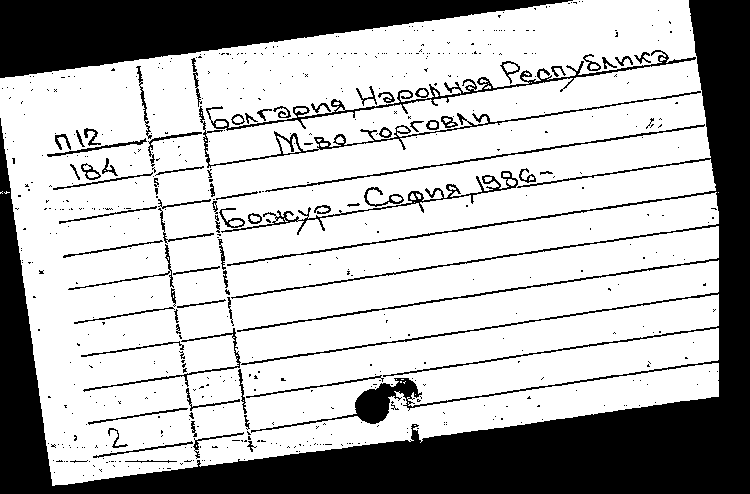 Болгария, Народная Республика
П12
М-во торговли
184
Божур. - София, 1986-
2